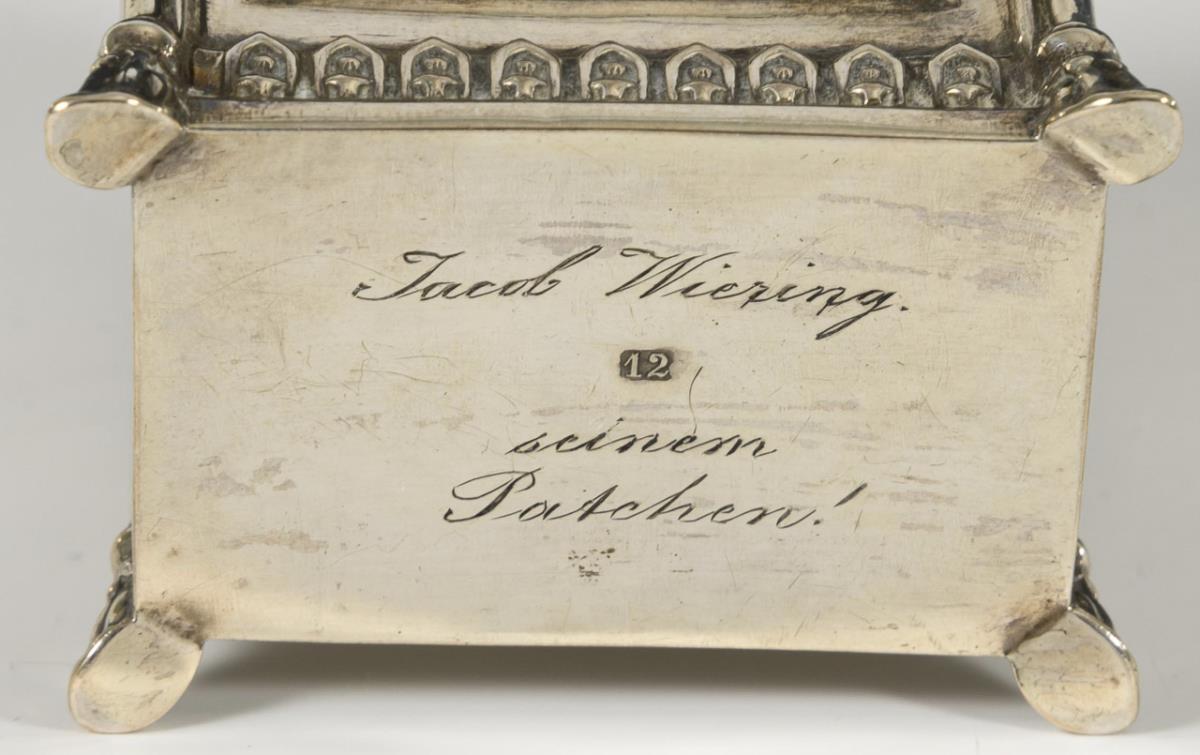 Jacob Wiezing.
12
seinem
Patchen!